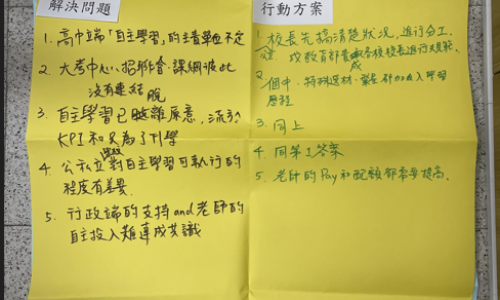 解決問題
1. 高中端「自主學習」的主責單位不定
2. 大考中心、招聯會、課綱彼此
沒有連結
3. 自主學習已脫離原意,流於
KPI和只為了升學
4. 公私立學校對自主學習可執行的
程度有差異.
5. 行政端的支持and老師的
自主投入難達成共識
行動方案
1. 校長先搞清楚狀況,進行分工.
校長進行
2. 個申、特殊選材、
學習
歷程
3. 同上
4. 同第1答案
5. 老師的Pay和配額都需要提高.